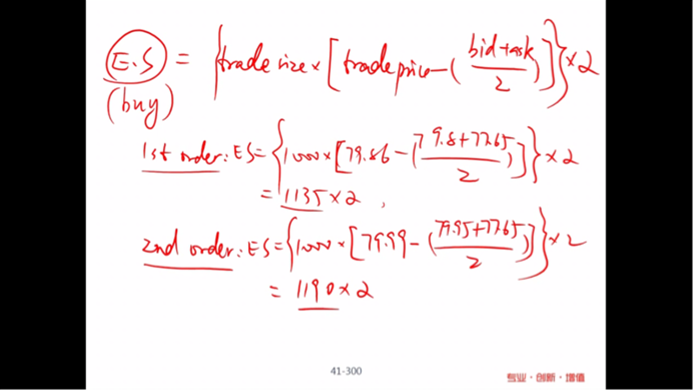 E.S = {trade size × [trade price - (bid+ask / 2)]} × 2
(buy)
1st order: ES = {1000 × [79.86 - (79.8+77.65 / 2)]} × 2
= 1135 × 2,
2nd order: ES = {1000 × [79.99 - (79.95+77.65 / 2)]} × 2
= 1190 × 2
41-300
专业·创新·增值